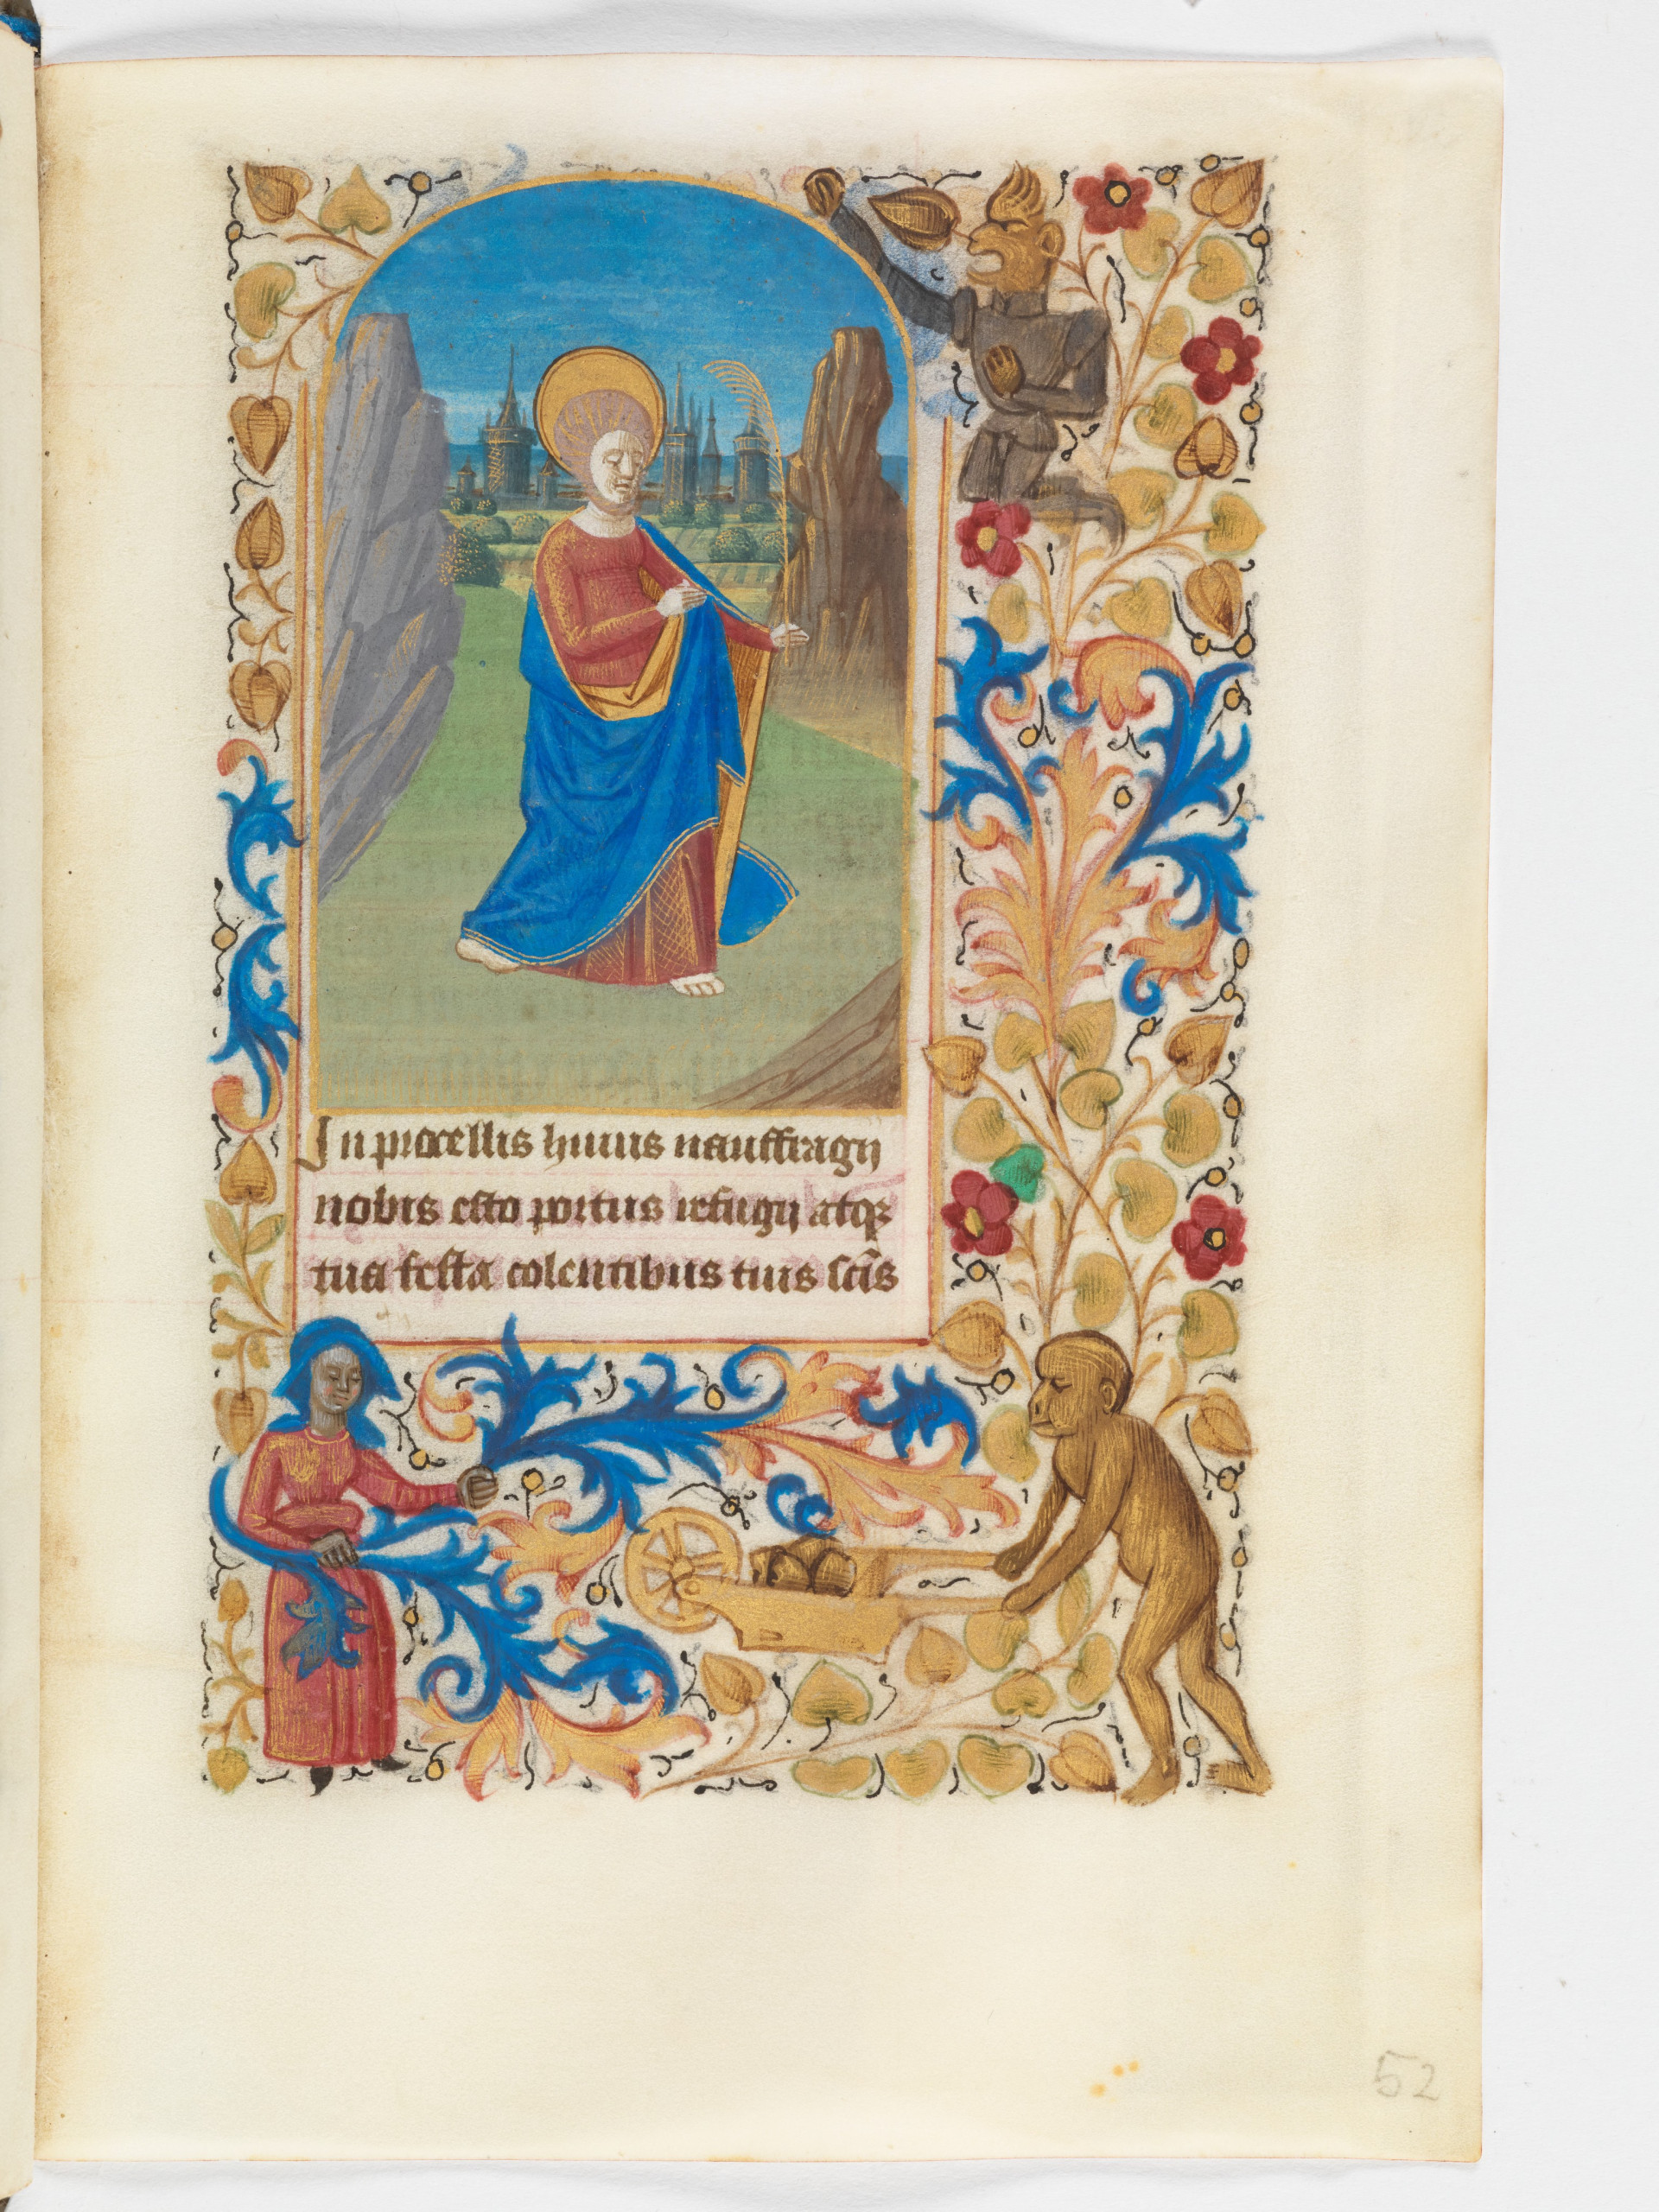 In procellis huius nauffragij
nobis esto portus refugij atqȝ
tua festa colentibus tuis scīs
52